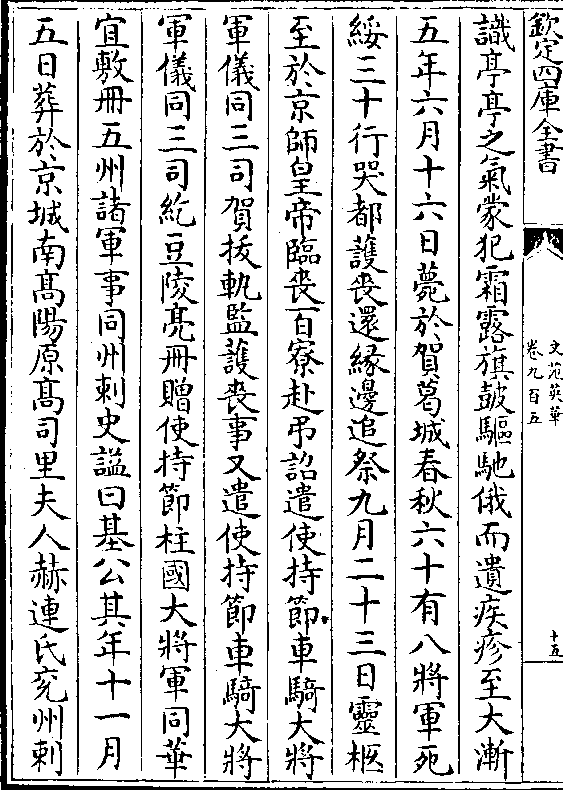 欽定四庫全書
文苑英華
卷九百五
十五
識亭亭之氣蒙犯霜露旗鼓驅馳俄而遺疾疹至大漸
五年六月十六日薨於賀葛城春秋六十有八將軍死
綏三十行哭都䕶喪還縁邊追祭九月二十三日靈柩
至於京師皇帝臨喪百寮赴弔詔遣使持節車騎大將
軍儀同三司賀拔軌監䕶喪事又遣使持節車騎大將
軍儀同三司紇豆陵亮冊贈使持節柱國大將軍同華
宜敷冊五州諸軍事同州刺史諡曰基公其年十一月
五日葬於京城南髙陽原髙司里夫人赫連氏兖州刺